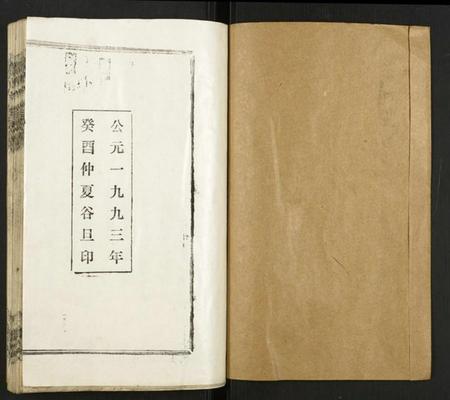 公元一九九三年
癸酉仲夏谷旦印